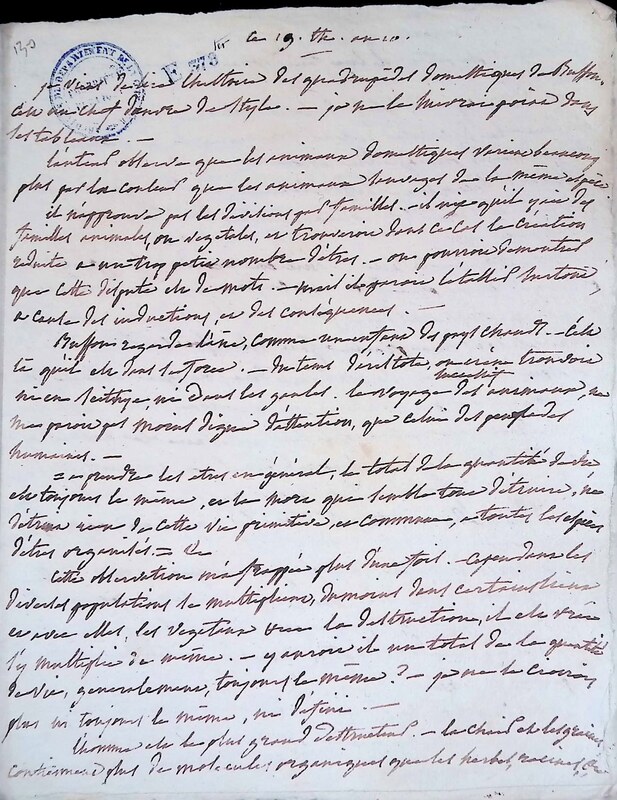 130
F 373
ce 19. th. an 10.
je viens de lire l'histoire des quadrupèdes domestiques de Buffon.
c'est un chef d'œuvre de style. — je ne la suivrai point dans
ses tableaux. —
l'auteur observe que les animaux domestiques varient beaucoup
plus par les couleurs que les animaux sauvages de la même espèce
il n'approuve pas les divisions par familles. — il nie qu'il y ait des
familles animales, ou vegetales, et trouveroit dans ce cas la création
reduite a un trop petit nombre d'êtres. — on pourroit demontrer
que cette dispute est de mots. — mais il paroit l'établir
a cause des inductions, et des conséquences. —
Buffon regarde l'âne, comme un enfant des pays chauds. — c'est
là qu'il est dans sa force. — du tems d'aristote, on n'en trouvoit
ni en scithye ni dans les gaules. le voyage successif des animaux, ne
me paroit pas moins digne d'attention, que celui des peuplades
humaines. —
= a prendre les etres en général, le total de la quantité de vie
est toujours le même, et la mort qui semble tout détruire, ne
détruit rien de cette vie primitive, et commune, a toutes les espèces
d'êtres organisés. =
Cette observation m'a frappée plus d'une fois. — cependant les
diverses populations se multiplient, du moins dans certains lieux
et avec elles, les vegetaux la destruction, il est vrai
s'y multiplie de même. — y auroit il un total de la quantité
de vie, generalement, toujours le même? — je ne le croirois
plus ni toujours le même, ni défini. —
l'homme est le plus grand destructeur. — la chair et les graines
contiennent plus de molecules organiques que les herbes, racines,